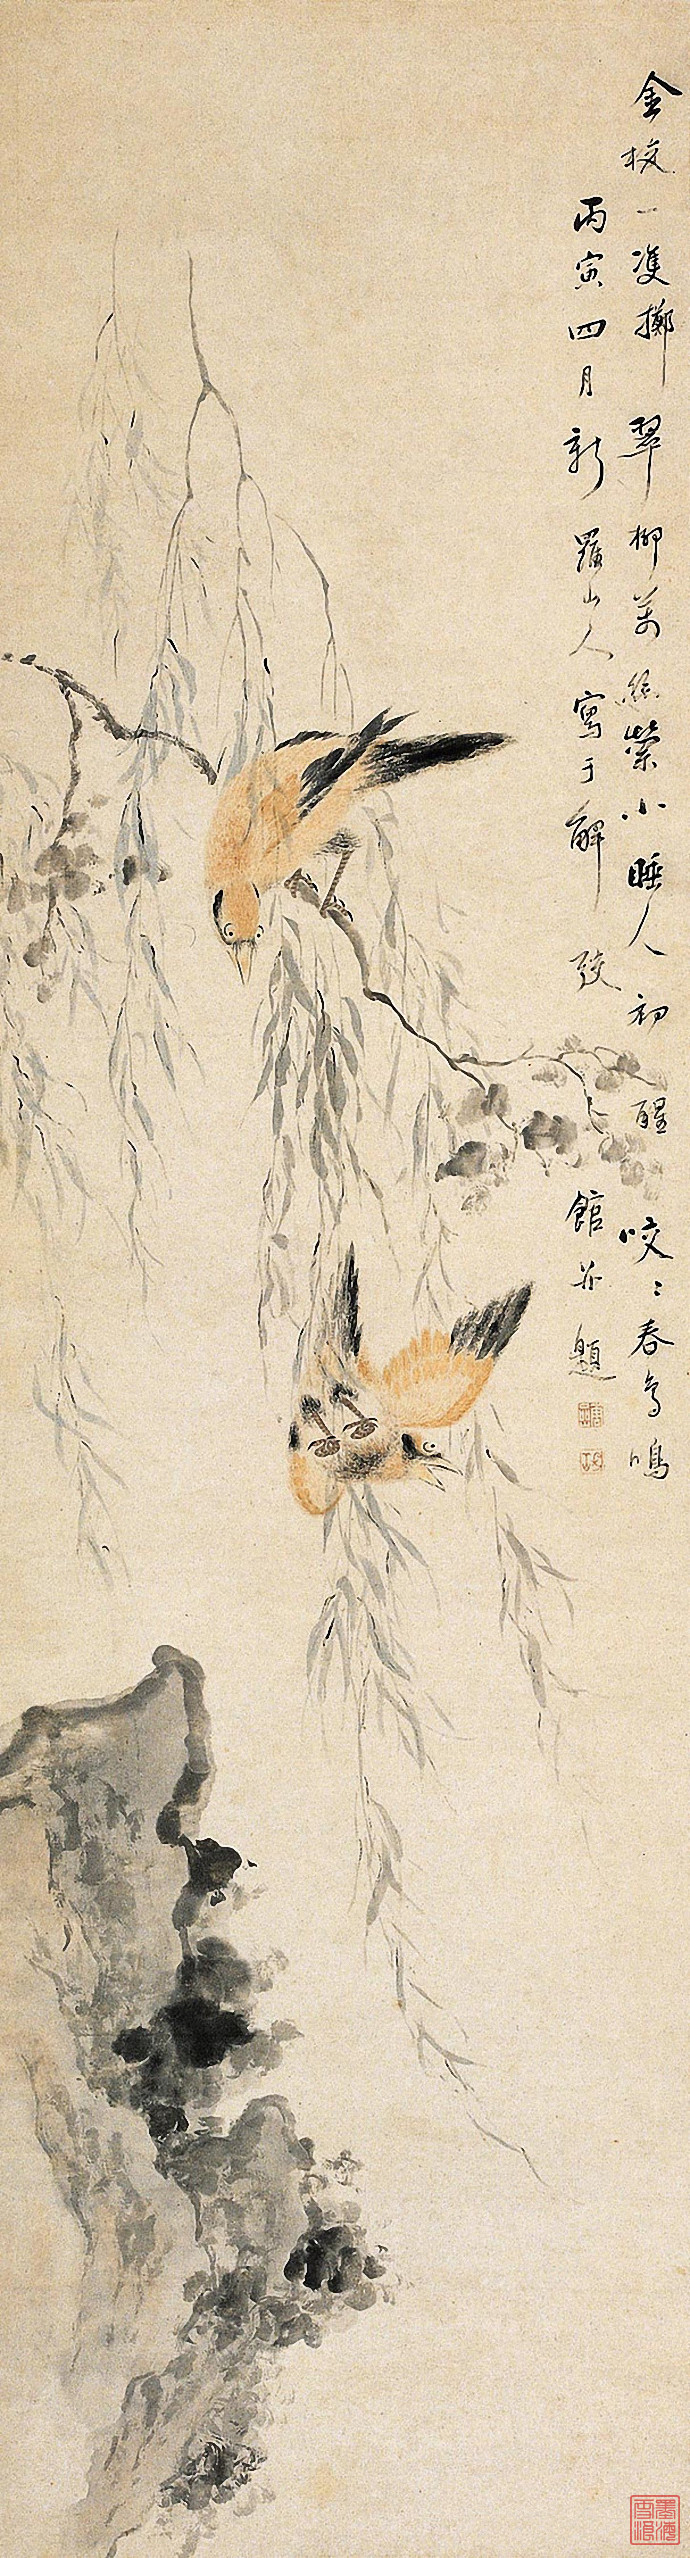 金梭一隻擲翠柳萬絲縈小睡人初醒咬〻春鳥鳴
丙寅四月新羅山人寫于解弢館并題